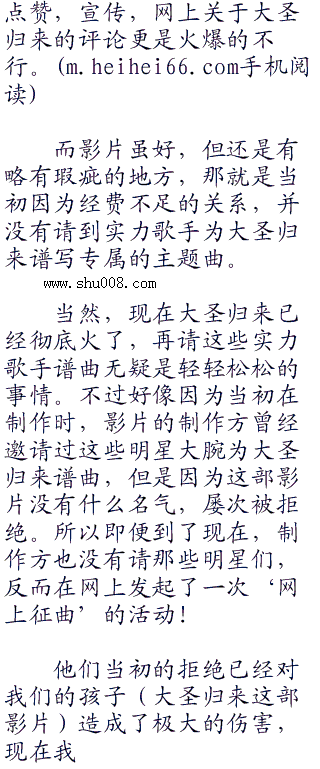 点赞，宣传，网上关于大圣
归来的评论更是火爆的不
行。(m.heihei66.com手机阅
读)
而影片虽好，但还是有
略有瑕疵的地方，那就是当
初因为经费不足的关系，并
没有请到实力歌手为大圣归
来谱写专属的主题曲。
www.shu008.com
当然，现在大圣归来已
经彻底火了，再请这些实力
歌手谱曲无疑是轻轻松松的
事情。不过好像因为当初在
制作时，影片的制作方曾经
邀请过这些明星大腕为大圣
归来谱曲，但是因为这部影
片没有什么名气，屡次被拒
绝。所以即便到了现在，制
作方也没有请那些明星们，
反而在网上发起了一次‘网
上征曲’的活动！
他们当初的拒绝已经对
我们的孩子（大圣归来这部
影片）造成了极大的伤害，
现在我